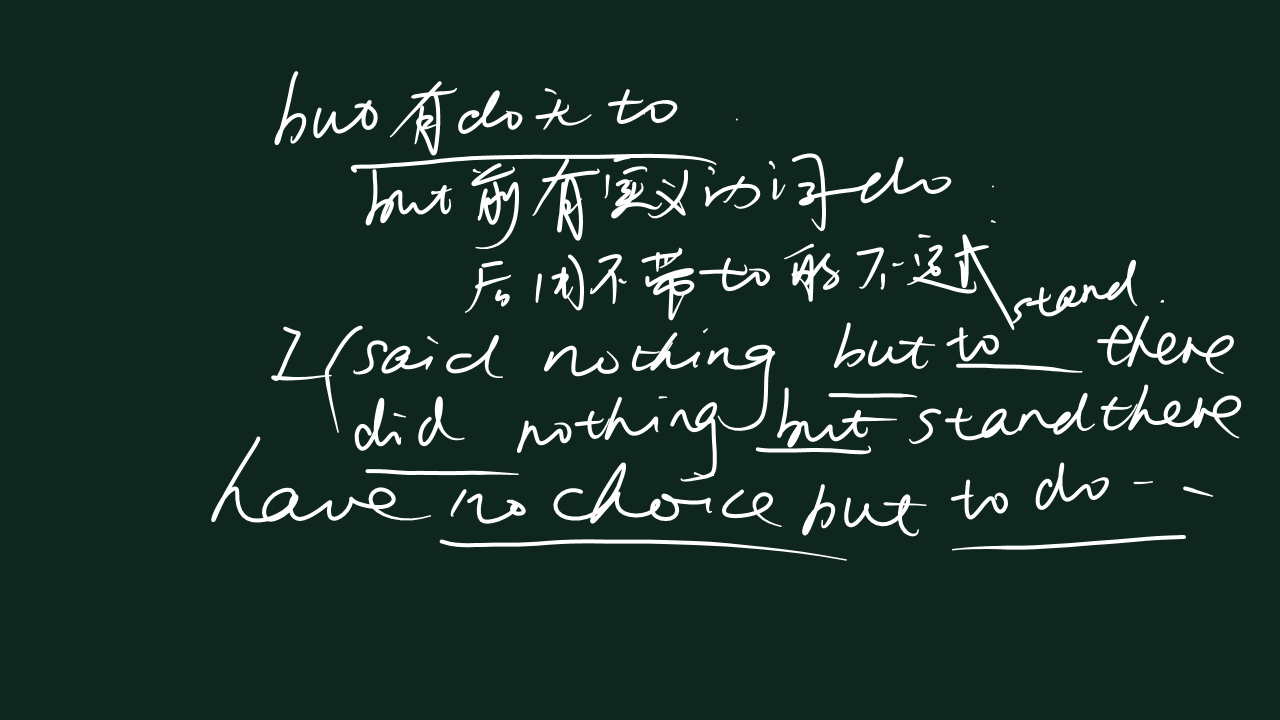 but有do无to
but前有实义动词do
后用不带to的不定式
stand
I said nothing but to there
did nothing but stand there
have no choice but to do --